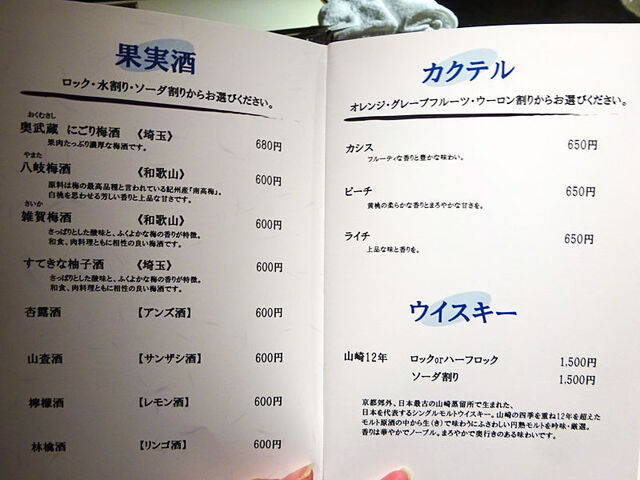 果実酒
ロック・水割り・ソーダ割りからお選びください。
おくむさし
奥武蔵 にごり梅酒 《埼玉》 680円
果肉たっぷり濃厚な梅酒です。
やまた
八岐梅酒 《和歌山》 600円
原料は梅の最高品種と言われている紀州産「南高梅」。
白桃を思わせる芳しい香りと上品な甘さです。
さいか
雑賀梅酒 《和歌山》 600円
さっぱりとした酸味と、ふくよかな梅の香りが特徴。
和食、肉料理ともに相性の良い梅酒です。
すてきな柚子酒 《埼玉》 600円
さっぱりとした酸味と、ふくよかな梅の香りが特徴。
和食、肉料理ともに相性の良い梅酒です。
杏露酒 【アンズ酒】 600円
山査酒 【サンザシ酒】 600円
檸檬酒 【レモン酒】 600円
林檎酒 【リンゴ酒】 600円
カクテル
オレンジ・グレープフルーツ・ウーロン割りからお選びください。
カシス 650円
フルーティな香りと豊かな味わい。
ピーチ 650円
黄桃の柔らかな香りとまろやかな甘さを。
ライチ 650円
上品な味と香りを。
ウイスキー
山崎12年 ロックorハーフロック 1,500円
ソーダ割り 1,500円
京都郊外、日本最古の山崎蒸留所で生まれた、
日本を代表するシングルモルトウイスキー。山崎の四季を重ね12年を超えた
モルト原酒の中から生(き)で味わうにふさわしい円熟モルトを吟味・厳選。
香りは華やかでノーブル。まろやかで奥行きのある味わいです。